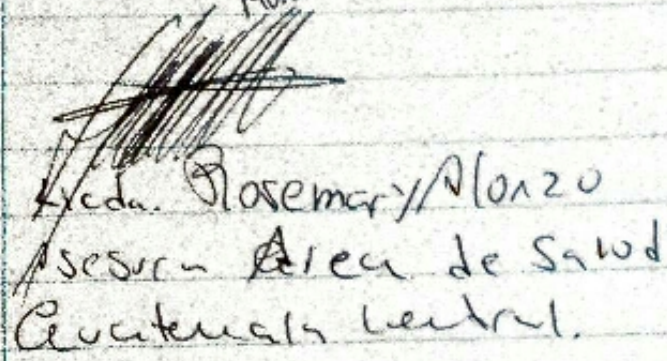 Licda. Rosemary Alonzo
Asesora Área de Salud
Guatemala Central.